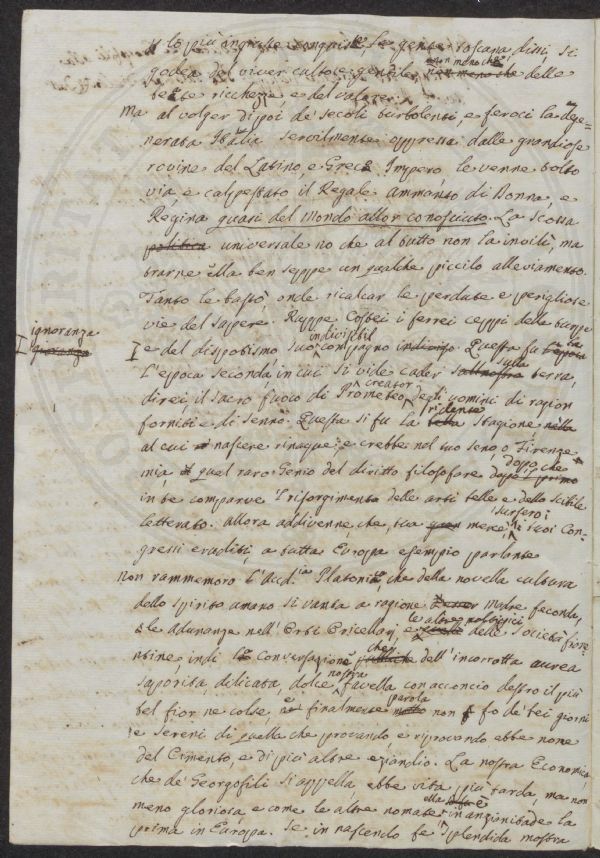 lo più ingiuste conquiste, la gente toscana dissi si
godea del viver culto e gentile, non meno che delle
belle ricchezze, e del valore.
Ma al volger dipoi de' secoli turbolenti, e feroci la dege=
nerata Italia servilmente oppressa dalle grandiose
rovine del Latino, e Greco Impero, le venne tolto
via, e calpestato il Regale ammanto di Donna, e
Regina quasi del Mondo allor conosciuto. La scossa
politica universale no che al tutto non la invilì, ma
trarne ella ben seppe un qualche piccilo alleviamento.
Tanto le bastò, onde ricalcar le perdute e perigliose
vie del sapere. Ruppe Costei i ferrei ceppi della
ignoranza
e del dispotismo, suo indivisibil compagno indiviso. Questa fu
L'epoca seconda in cui si vide cader sulla terra,
direi, il sacro fuoco di Prometeo creator degli uomini di ragion
forniti e di senno. Questa si fu la ridente stagione nella
al cui nascere rinacque, e crebbe nel tuo seno, o Firenze
mia, quel raro Genio del diritto filosofare dopo che
in te comparve l'risorgimento delle arti belle e dello scibile
letterato. Allora addivenne, che, tua mercè, sursero i suoi Con=
gressi eruditi, a tutta Europa esempio parlante
Non rammemoro l'Accd.ia Platonica, che della novella cultura
dello spirito umano si vanta a ragione Madre feconda,
le Adunanze nell'Orti Oricellarj, e le altre delle Società fiore
ntine indi conversazione che dell'incorrotta aurea
saporita, delicata, dolce nostra favella con acconcio destro il più
bel fior ne colse, e finalmente parola non fo de' bei giorni
e sereni di quella che provando, e riprovando ebbe nome
del Cimento, e di più altre eziandio. La nostra Economica,
che de' Georgofili si appella, ebbe vita più tarda, ma non
meno gloriosa, e come le altre nomate ella in anzianitade la
prima in Europa. Se in nascendo fè splendida mostra